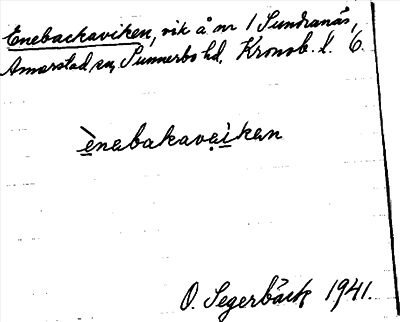 Enebackaviken, vik å nr 1 Sundranäs,
Annerstad sn, Sunnerbo hd. Kronob. l. 6.
ènabakavạikan
O. Segerbäck 1941.